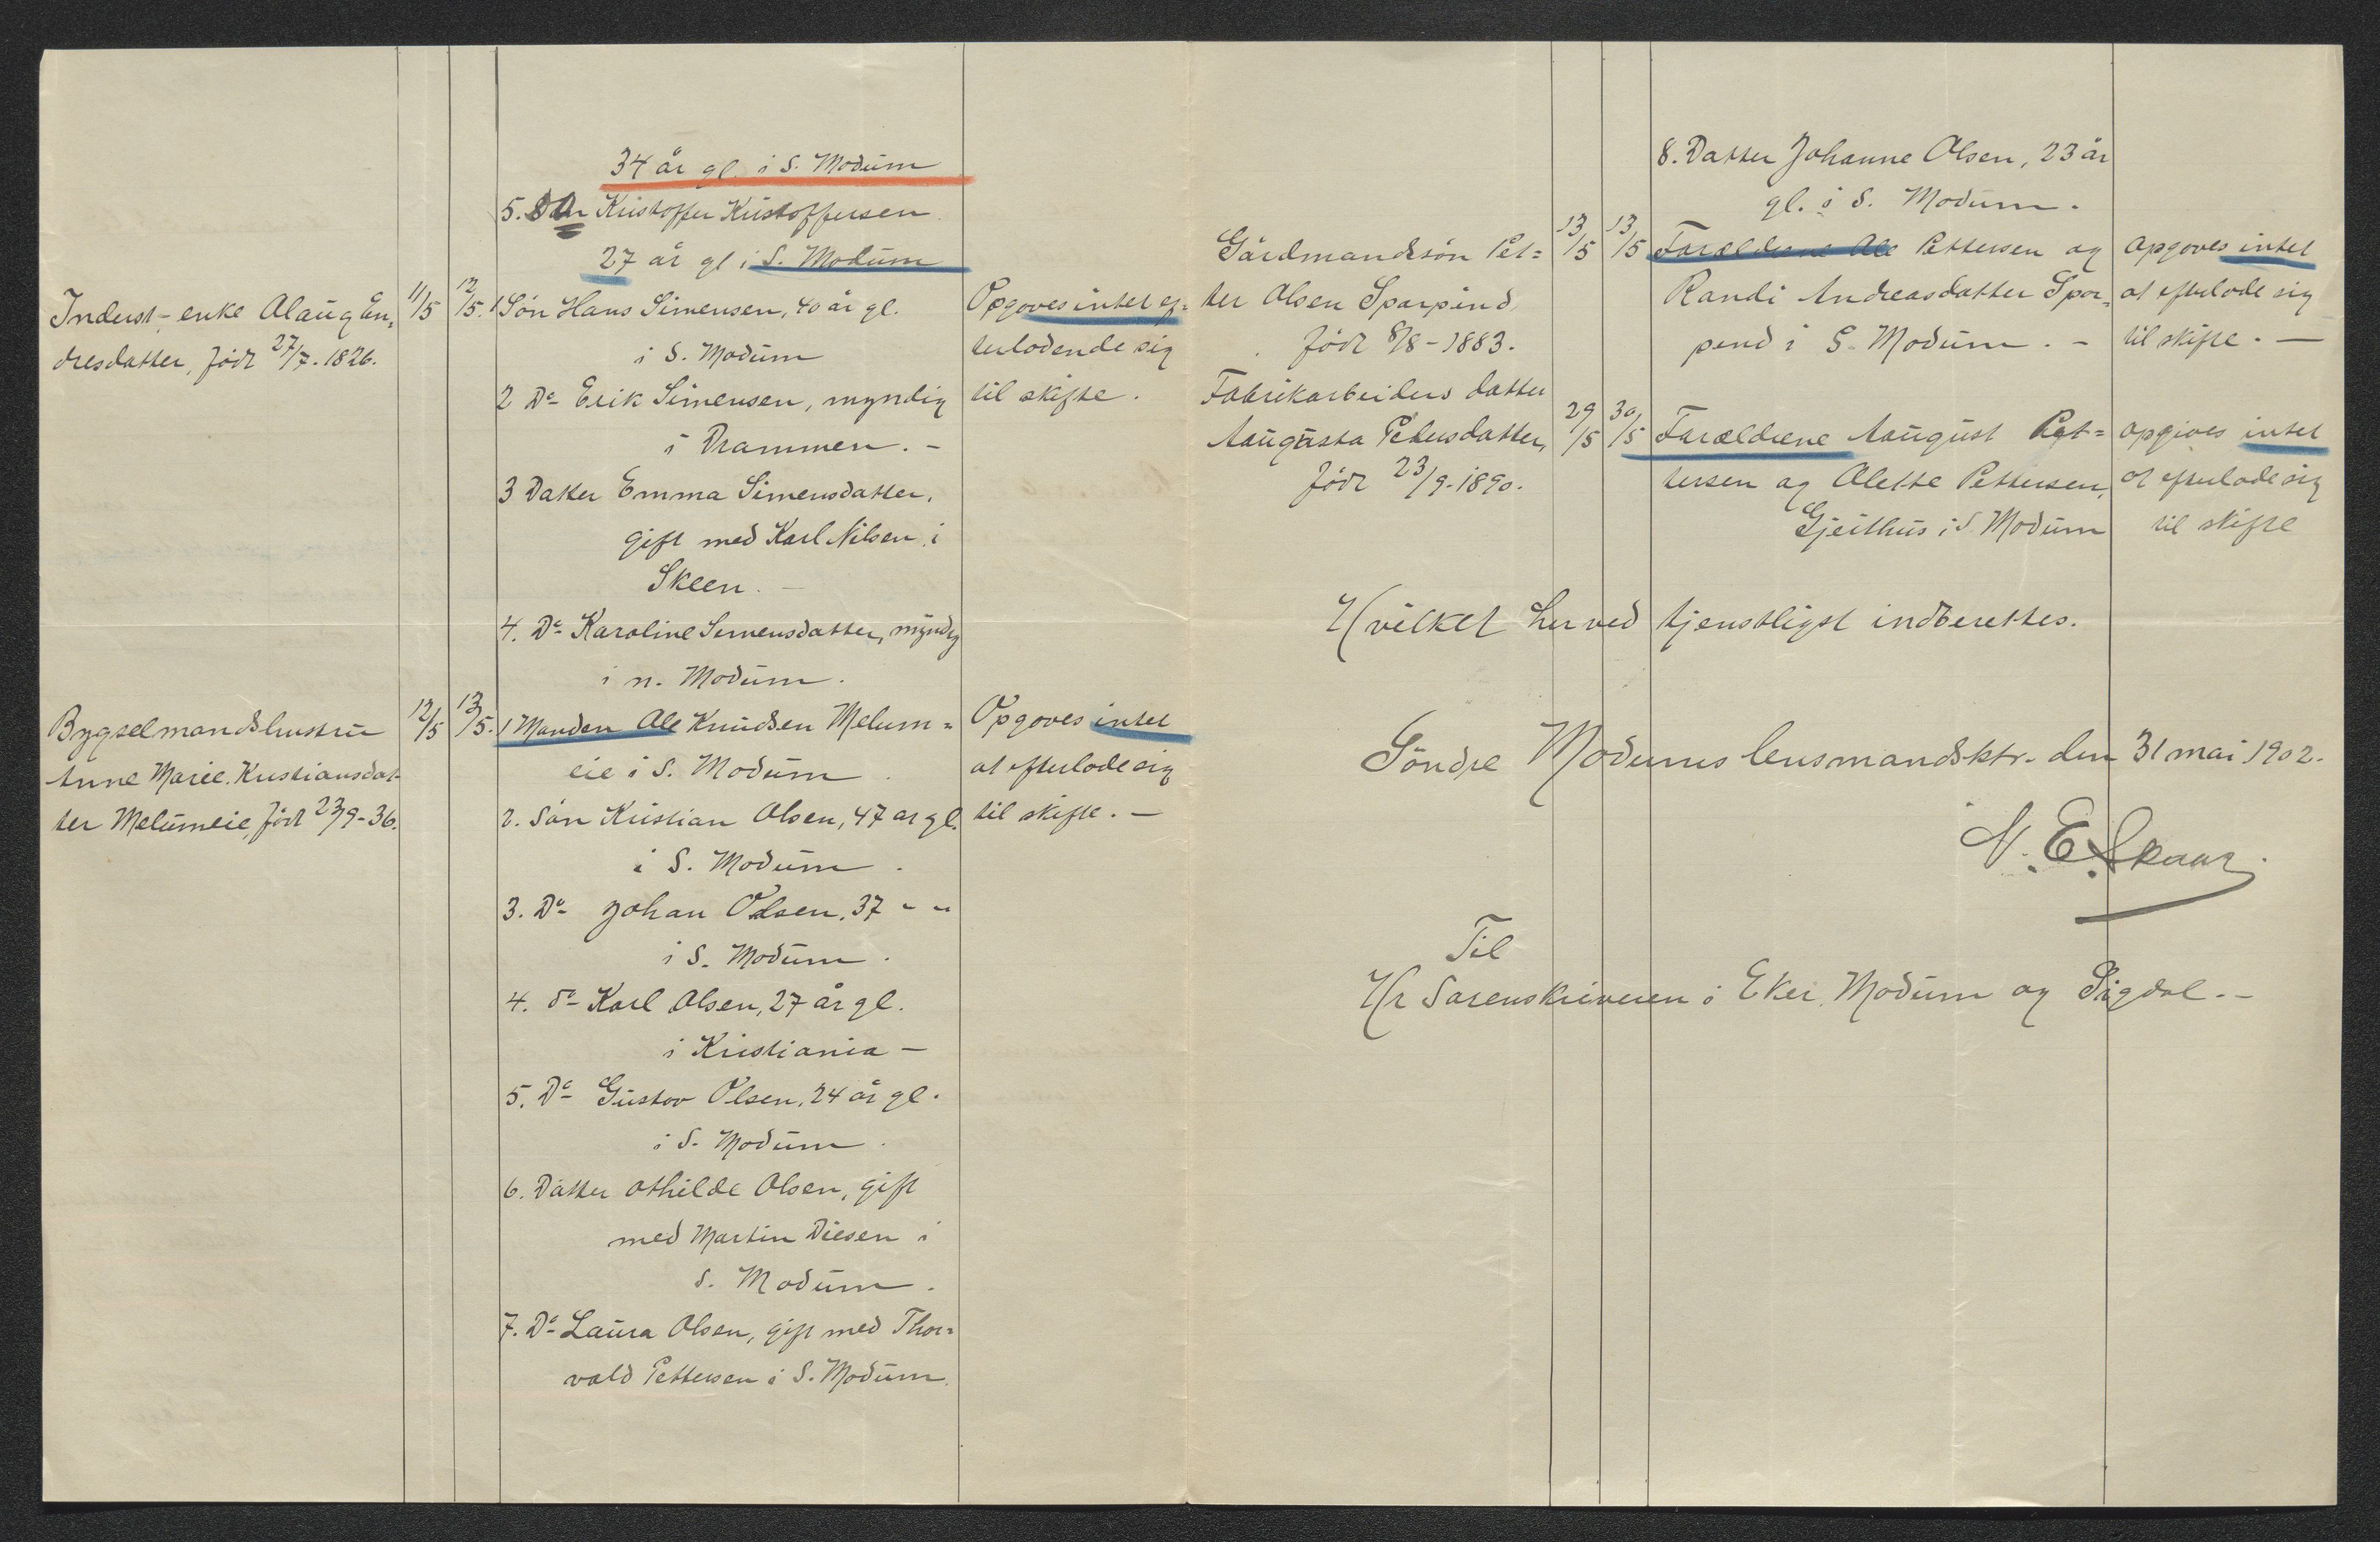 34 år gl. i S. Modum
5. Kristoffer Kristoffersen
27 år gl i S. Modum
Inderst-enke Olaug En-
dresdatter, født 27/7-1826.
11/5
12/5.
1 Søn Hans Simensen, 40 år gl.
i S. Modum
2 Do Erik Simensen, myndig
i Drammen. -
3 Datter Emma Simensdatter,
gift med Karl Nilsen i
Skeen. -
4. Do Karoline Simensdatter, myndig
i n. Modum.
Opgoves intet ef-
terladende sig
til skifte.
Bygselmandshustru
Anne Marie Kristiansdat-
ter Melumeie, født 23/9-36.
12/5
13/5.
1 Manden Ole Knudsen Melum-
eie i S. Modum.
2. Søn Kristian Olsen, 47 år gl.
i S. Modum.
3. Do Johan Olsen, 37 " "
i S. Modum.
4. do Karl Olsen, 27 år gl.
i Kristiania -
5. Do Gustav Olsen, 24 år gl.
i S. Modum.
6. Datter Othilde Olsen, gift
med Martin Diesen i
S. Modum.
7. Do Laura Olsen, gift med Thor-
vald Pettersen i S. Modum.
Opgoves intet
at efterlade sig
til skifte. -
8. Datter Johanne Olsen, 23 år
gl. i S. Modum.
Gårdmandssøn Pet-
ter Olsen Sparpind
født 8/8-1883.
13/5
13/5
Forældrene Ole Pettersen og
Randi Andreasdatter Spar-
pend i S. Modum. -
opgoves intet
at efterlade sig
til skifte. -
Fabrikarbeiders datter
Augusta Petersdatter,
født 23/9-1890.
29/5
30/5
Forældrene August Pet-
tersen og Olette Pettersen,
Gjeithus i S. Modum
opgives intet
at efterlade sig
til skifte
Hvilket herved tjenstligst indberettes.
Søndre Modums lensmandsktr. den 31 mai 1902.
N. E. Skaar.
Til
Hr Sorenskriveren i Eker, Modum og Sigdal. -